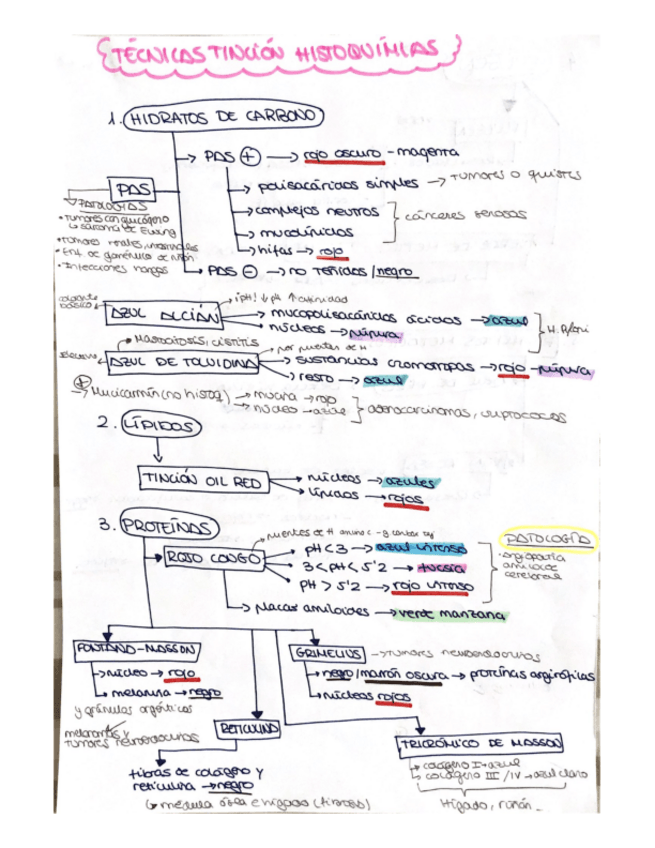 TÉCNICAS TINCIÓN HISTOQUÍMICAS
1. HIDRATOS DE CARBONO
PAS + → rojo oscuro - magenta
PAS
polisacáridos simples → tumores o quistes
PATOLOGÍAS
complejos neutros
cánceres serosos
• tumores con glucógeno
↳ sarcoma de Ewing
mucolípidos
• tumores renales, intestinales
hifas → rojo
• Enf. de
• Infecciones hongos
PAS - → no teñidos / negro
colorante básico
¡pH! ↓ pH ↑ afinidad
AZUL ALCIÁN
mucopolisacáridos ácidos → azul
núcleos → púrpura
H. Pylori
Mastocitosis, cistitis
por puentes de H
selectivo
AZUL DE TOLUIDINA
sustancias cromotropas → rojo - púrpura
resto → azul
+
→ Mucicarmín (no histoq) → mucina → rojo
→ núcleo → azul
adenocarcinomas,
2. LÍPIDOS
TINCIÓN OIL RED
núcleos → azules
lípidos → rojos
3. PROTEÍNAS
puentes de H
PATOLOGÍA
ROJO CONGO
pH < 3 → azul intenso
• angiopatía
amiloide
cerebral
3 < pH < 5'2 → fucsia
pH > 5'2 → rojo intenso
placas amiloides → verde manzana
FONTANA-MASSON
GRIMELIUS → tumores neuroendocrinos
→ núcleo → rojo
→ negro/marrón oscura → proteínas argirófilas
→ melanina → negro
→ núcleos rojos
y gránulos argénticos
melanomas y
tumores neuroendocrinos
RETICULINA
TRICRÓMICO DE MASSON
→ colágeno I → azul
→ colágeno III / IV → azul claro
fibras de colágeno y
reticulina → negro
↳ médula ósea e hígado (fibrosis)
Hígado, riñón